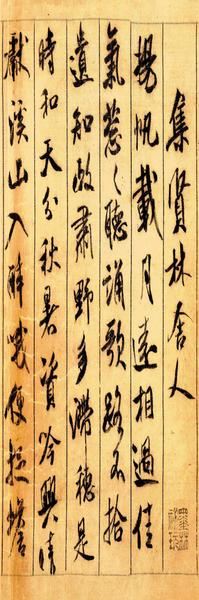 集賢林舍人
揚帆載月遠相過佳
氣葱々聽誦歌路不拾
遺知政肅野多滯穗是
時和天分秋暑資吟興晴
獻溪山入醉哦便捉蟾